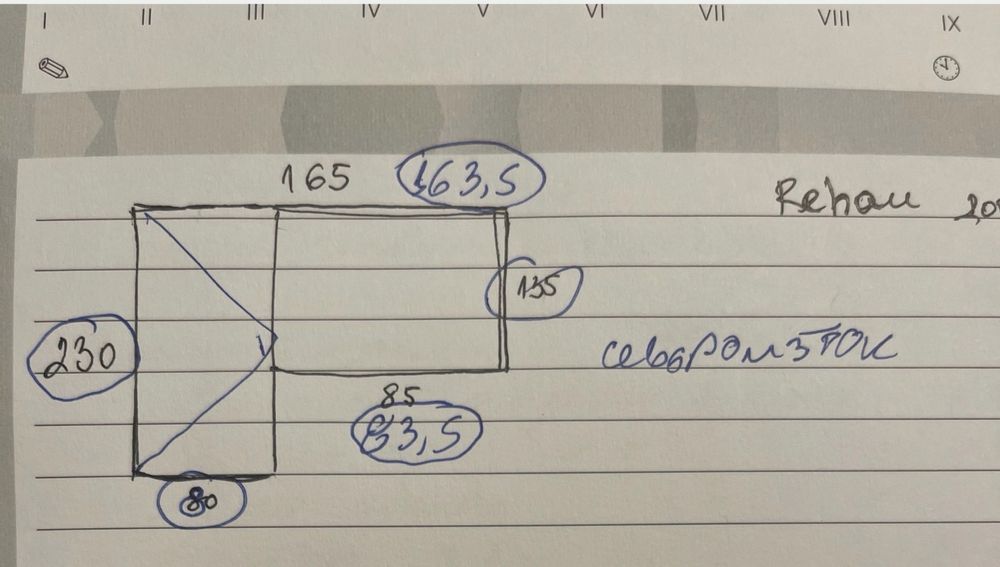 I II III IV V VI VII VIII IX
165 163,5
Rehau
135
230
85
83,5
80